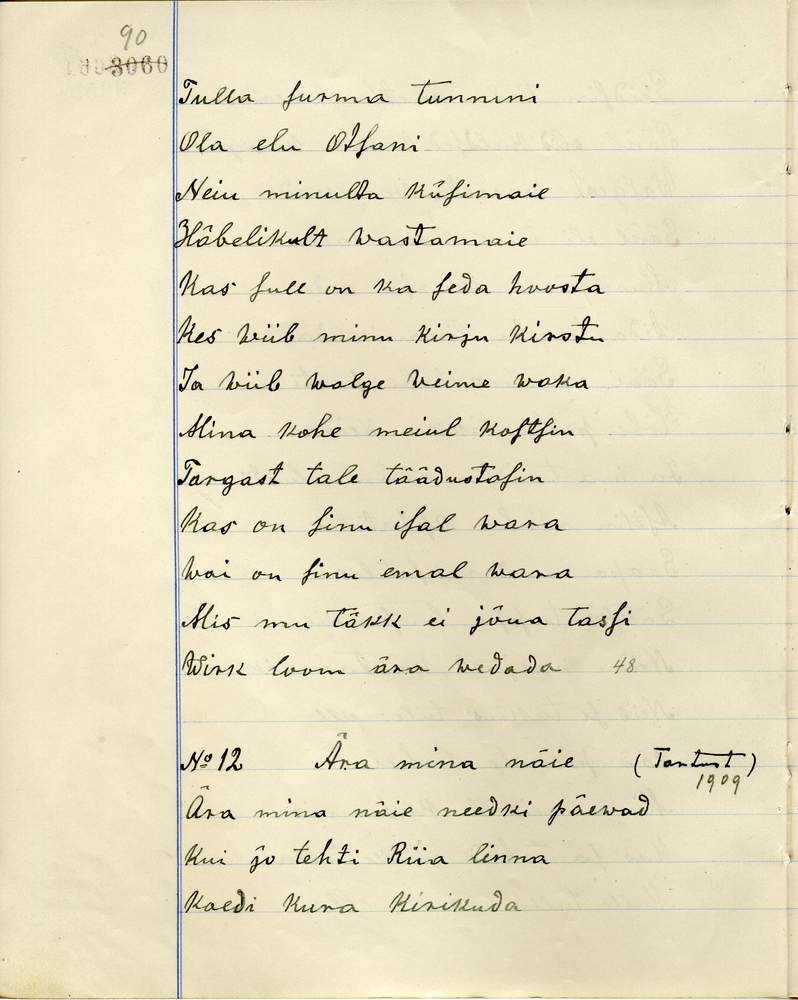 90
3060
Tulla surma tunnini
Ola elu Otsani
Neiu minulta küsimaie
Häbelikult wastamaie
Kas sull on ka seda hoosta
Kes wiib minu kirju kirstu
Ja wiib walge weime waka
Mina kohe meiul kostsin
Targast tale täädustasin
Kas on sinu isal wara
Woi on sinu emal wara
Mis mu täkk ei jõua tassi
Wirk loom ära wedada 48
№ 12 Ära mina näie (Tantust)
1909
Ära mina näie needki päewad
Kui jo tehti Riia linna
Kaedi Kura Kirikuda